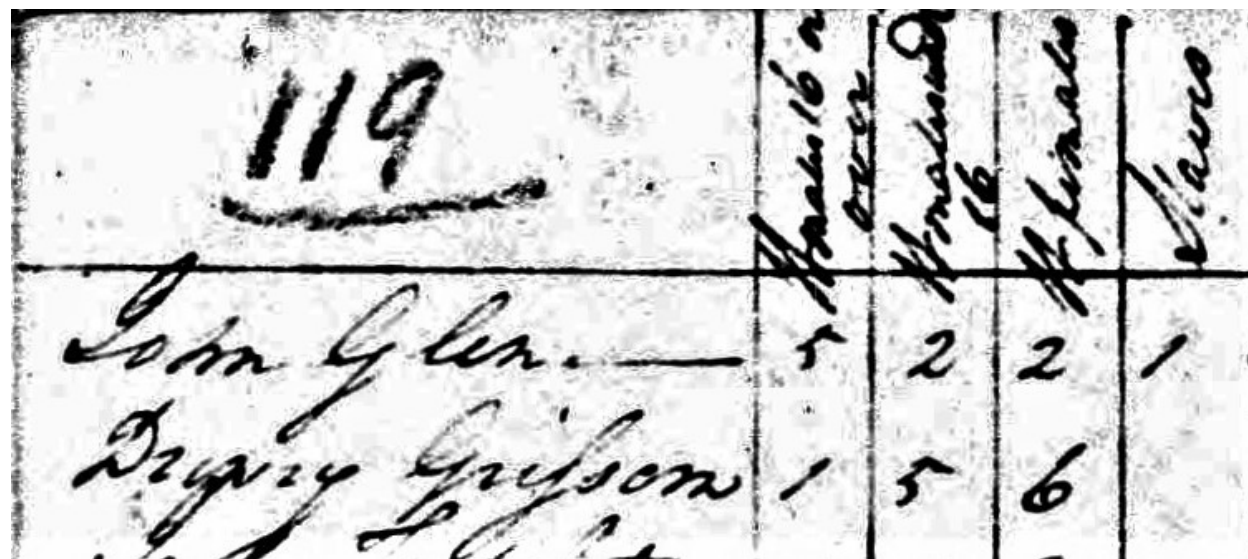 119
W males 16 or over
W males under 16
W females
Slaves
John Glen. 5 2 2 1
Drury Grissom 1 5 6